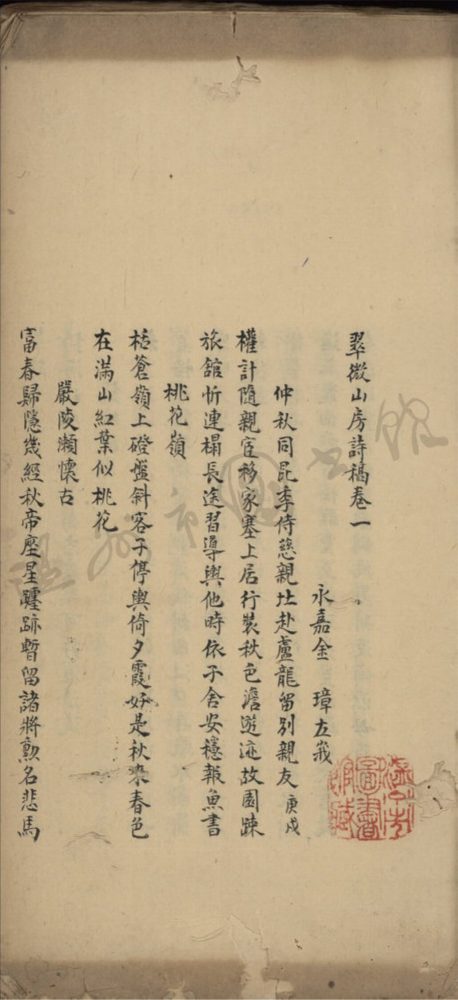 翠微山房詩稿卷一
永嘉金璋左峩
仲秋同昆季侍慈親北赴盧龍留別親友庚戌
權計隨親宦移家塞上居行裝秋色澹遊迹故園踈
旅舘忻連榻長途習導輿他時依子舍安穩報魚書
桃花嶺
栝蒼嶺上磴盤斜客子停輿倚夕霞好是秋來春色
在滿山紅葉似桃花
嚴陵瀨懷古
富春歸隱幾經秋帝座星躔跡暫留諸將勲名悲馬
圖書館